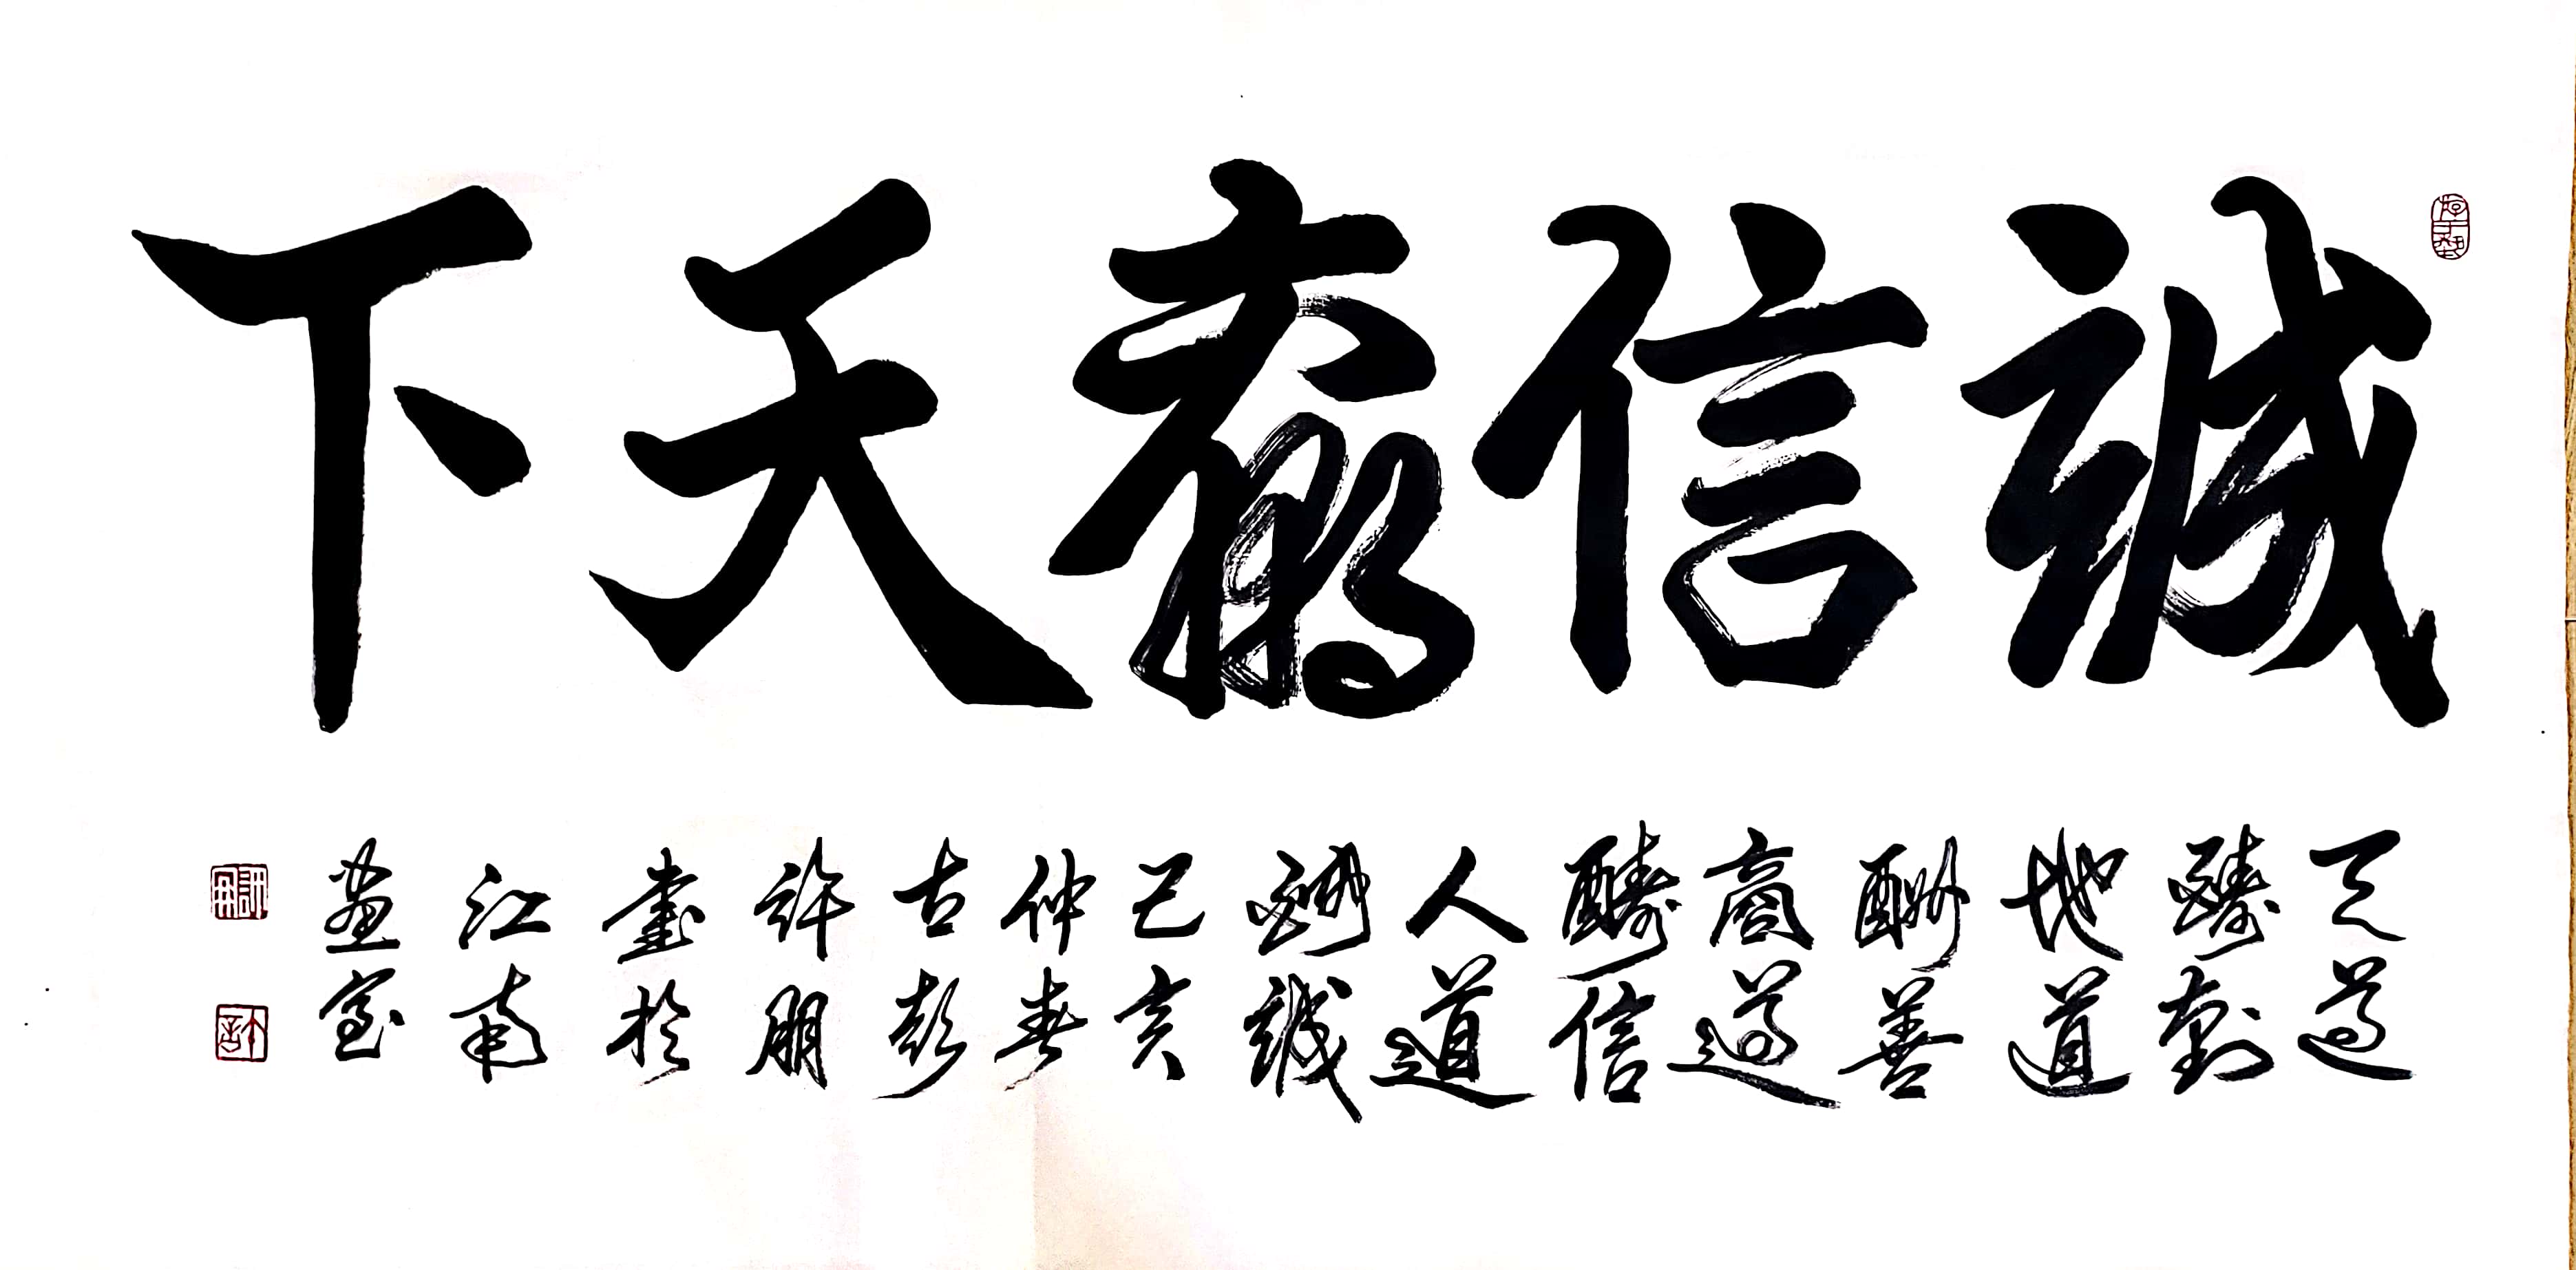 誠信贏天下
天道
醻勤
地道
酬善
商道
醻信
人道
酬誠
己亥
仲春
古彭
許朋
書於
江南
畫室